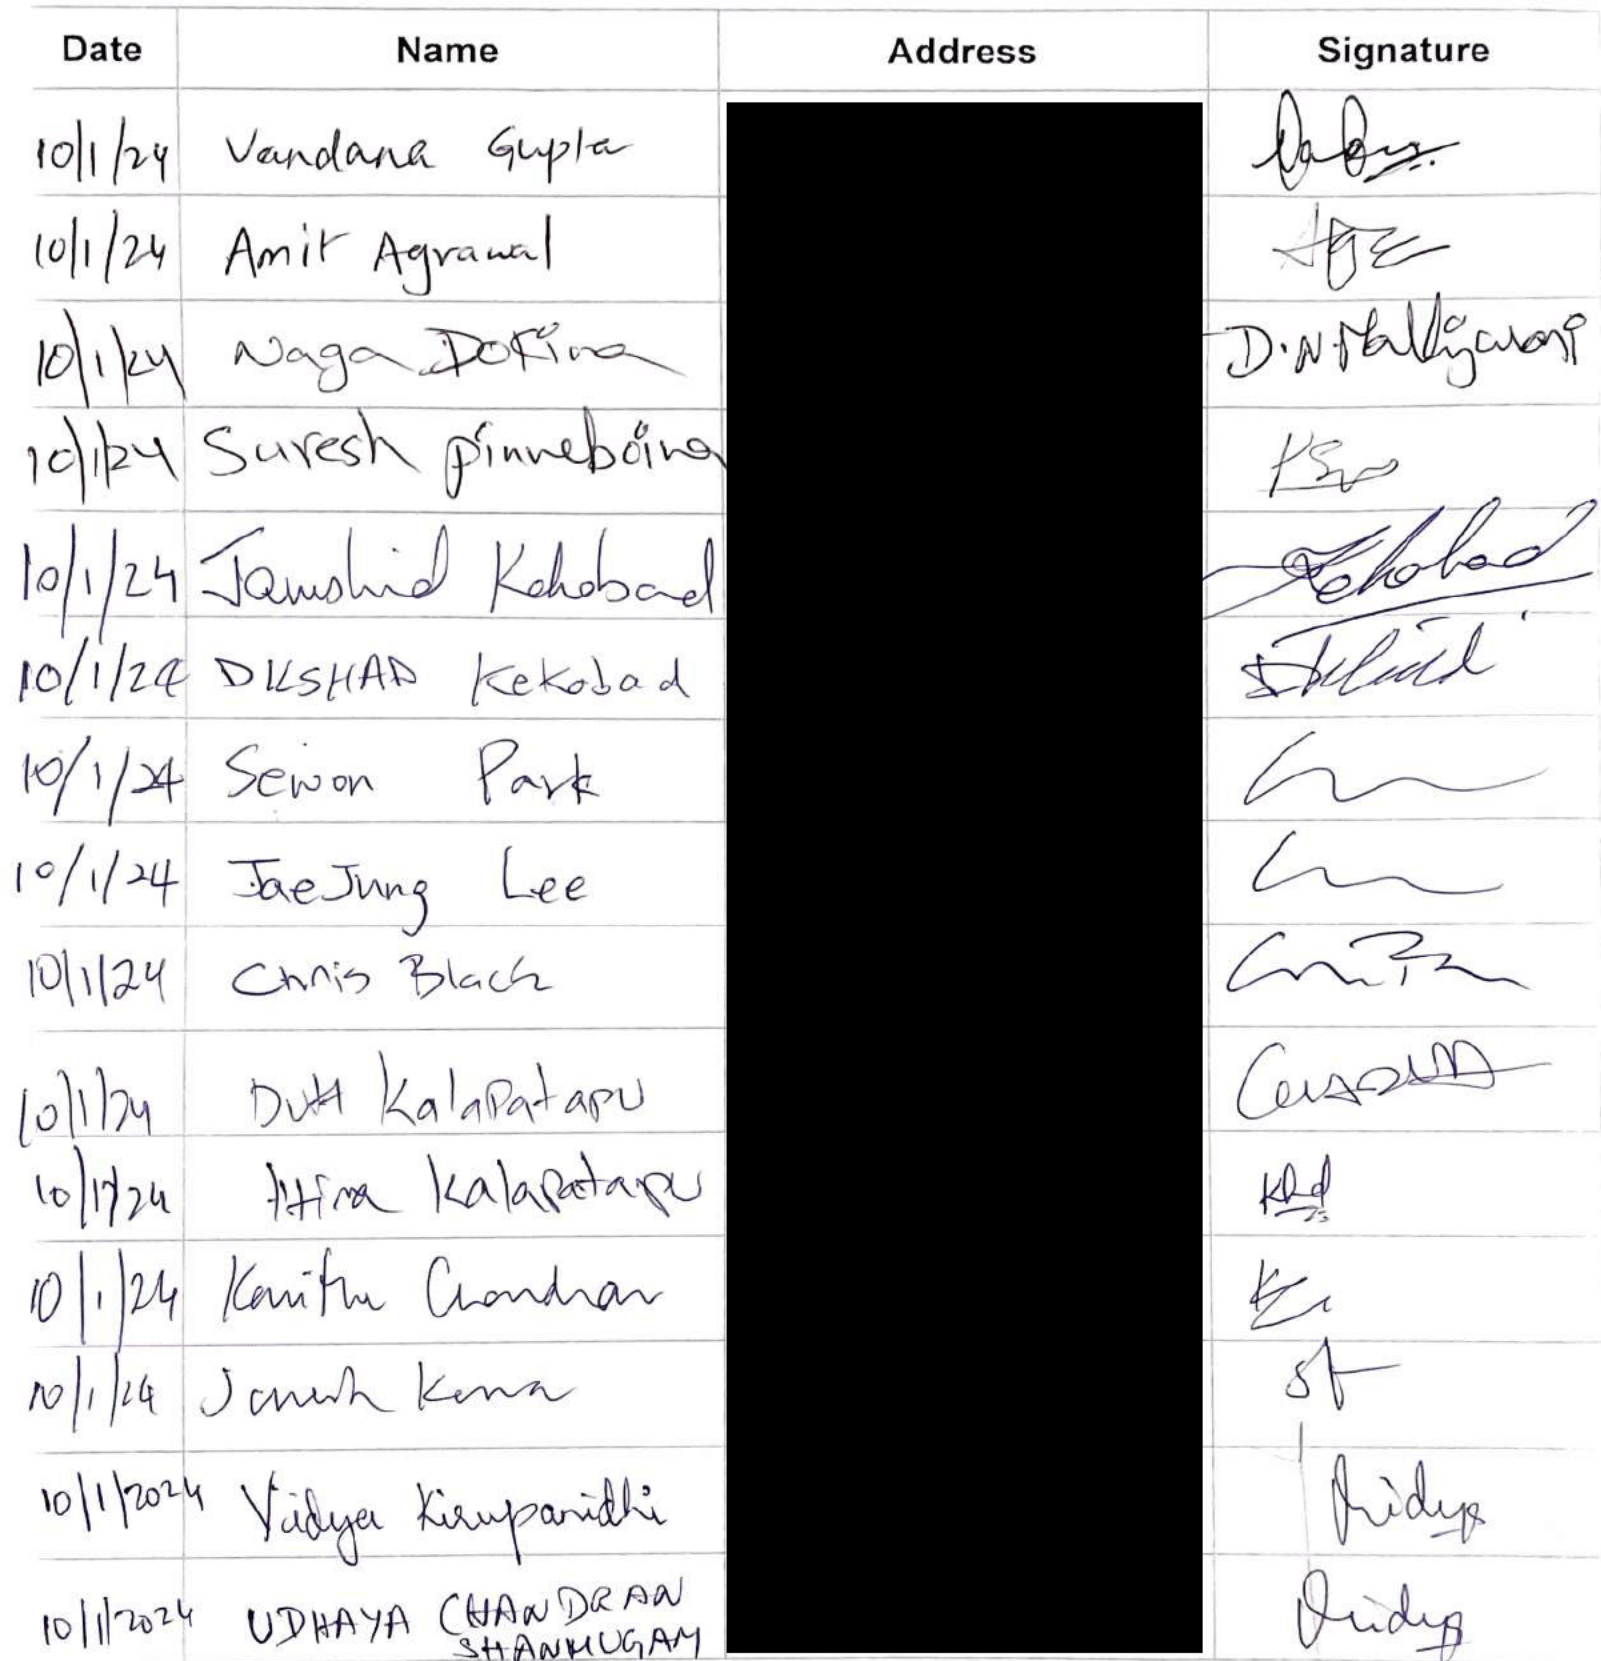 Date Name Address Signature
10/1/24 Vandana Gupta
10/1/24 Amit Agrawal
10/1/24 Naga Dokina D.N.Malleswari
10/1/24 Suresh pinneboina
10/1/24 Jamshid Kekobad Kekobad
10/1/24 DILSHAD Kekobad
10/1/24 Sewon Park
10/1/24 JaeJung Lee
10/1/24 Chris Black
10/1/24 Dutt Kalapatapu
10/1/24 Kalapatapu
10/1/24 Kavitha Chandran
10/1/24
10/1/2024 Vidya Kirupanidhi Vidya
10/1/2024 UDHAYA CHANDRAN Vidya
SHANMUGAM